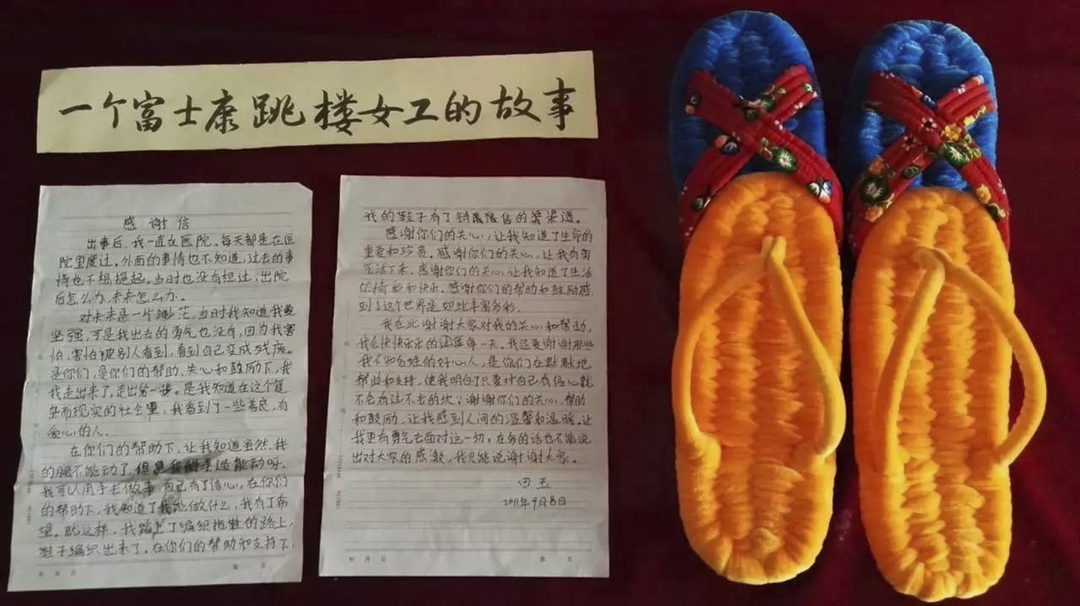 一个富士康跳楼女工的故事
感谢信
出事后,我一直在医院,每天都是在医
院里度过,外面的事情也不知道,过去的事
情也不想提起。当时也没有想过,出院
后怎么办,未来怎么办。
对未来是一片迷茫,当时我知道我要
坚强,可是我出去的勇气也没有,因为我害
怕,害怕被别人看到,看到自己变成残废。
是你们,是你们的帮助,关心和鼓励下,我
我走出来了,走出第一步。是我知道在这个复
杂而现实的社会里,我看到了一些善良,有
爱心的人。
在你们的帮助下,让我知道虽然,我
的腿不能动了,但是我的手还能动呀。
我可以用手去做事 自己有了信心。在你们
的帮助下,我知道了我能做什么,我有了希
望。就这样,我踏上了编织拖鞋的路上,
鞋子编织出来了。在你们的帮助和支持下,
我的鞋子有了销售的渠道。
感谢你们的关心,让我知道了生命的
重要和珍贵。感谢你们的关心,让我有勇
气活下来。感谢你们的关心,让我知道了生活
的精彩和快乐。感谢你们的帮助和鼓励感
到了这个世界是如此丰富多彩。
我在此谢谢大家对我的关心和帮助,
我会快快乐乐的过每一天。我还要谢谢那些
我不知名姓的好心人,是你们在默默地
帮助和支持,使我明白了只要对自己有信心就
不会有过不去的坎。谢谢你们的关心,帮助
和鼓励,让我感到人间的温馨和温暖。让
我更有勇气去面对这一切。在多的话也不能说
出对大家的感激,我只能说谢谢大家。
田玉
2011年9月8日